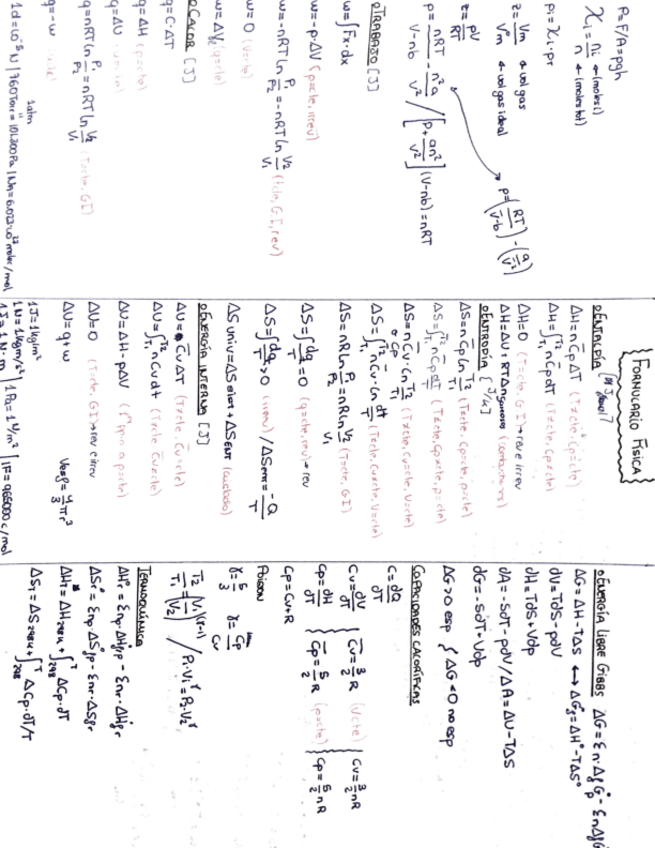 FORMULARIO FÍSICA
P=F/A=ρgh
Xi = ni/n ← (moles i) ← (moles tot)
pi = Xi·pT
z = Vm/Vm ← vol gas ← vol gas ideal
z = pV/RT
p = nRT/V-nb - n²a/V² / [P + an²/V²](V-nb) = nRT
p = (RT/V-b) - (a/V²)
TRABAJO [J]
w=∫Fx·dx
w=-p·ΔV (p=cte, irrev)
w=-nRT ln P1/P2 = -nRT ln V2/V1 (t cte, G.I, rev)
w=0 (V=cte)
w=ΔU (q=cte)
CALOR [J]
q=C·ΔT
q=ΔH (p=cte)
q=ΔU (V=cte)
q=nRT ln P1/P2 = nRT ln V2/V1 (T=cte, GI)
q=-w
1atm
760Torr = 101.300Pa | NA=6.023·10²³ molec/mol
ENTALPÍA
ΔH=nCpΔT (T≠cte, Cp=cte)
ΔH=∫T1T2 nCpdT (T≠cte, Cp≠cte)
ΔH=0 (T=cte, GI)→rev e irrev
ΔH=ΔU+RTΔn gaseosos (combustión)
ENTROPÍA [J/K]
ΔS=nCp ln T2/T1 (T≠cte, Cp=cte, p=cte)
ΔS=∫T1T2 nCp dT/T (T≠cte, Cp≠cte, p=cte)
ΔS=nCv·ln T2/T1 (T≠cte, Cv=cte, V=cte)
o Cp
ΔS=∫T1T2 nCv·dT/T (T≠cte, Cv≠cte, V=cte)
ΔS=nR ln P1/P2 = nR ln V2/V1 (T=cte, GI)
ΔS=∫dq/T=0 (q=cte, rev)→rev
ΔS=∫dq/T>0 (irrev) / ΔSent=-Q/T
ΔS univ=ΔS sist+ΔS ENT
ENERGÍA INTERNA [J]
ΔU=CvΔT (T≠cte, Cv=cte)
ΔU=∫T1T2 nCvdt (T≠cte Cv≠cte)
ΔU=ΔH-pΔV
ΔU=0 (T=cte, GI)→rev e irrev
ΔU=q+w
Vesf=4/3πr³
1J=1kgm²
1N=1kgm/s²
1J=1N·m | 1Pa=1N/m² | 1F=96500C/mol
ENERGÍA LIBRE GIBBS ΔG=ΣnΔfG°p-ΣnΔfG
ΔG=ΔH-TΔS ⟷ ΔG°=ΔH°-TΔS°
dU=TdS-pdV
dH=TdS+Vdp
dA=-SdT-pdV/ΔA=ΔU-TΔS
dG=-SdT+Vdp
ΔG>0 esp { ΔG<0 no esp
CAPACIDADES CALORÍFICAS
C=dQ/dT
Cv=dU/dT } Cv=3/2R (Vcte) } Cv=3/2nR
Cp=dH/dT } Cp=5/2R (p=cte) } Cp=5/2nR
Cp=Cv+R
γ=5/3 γ=Cp/Cv
T2/T1=(V1/V2)^(γ-1) / P1·V1^γ=P2·V2^γ
TERMOQUÍMICA
ΔHr°=Σnp·ΔHf°p-Σnr·ΔHf°r
ΔSr°=Σnp·ΔS°p-Σnr·ΔS°r
ΔHT=ΔH298K+∫298T ΔCp·dT
ΔST=ΔS298K+∫298T ΔCp·dT/T